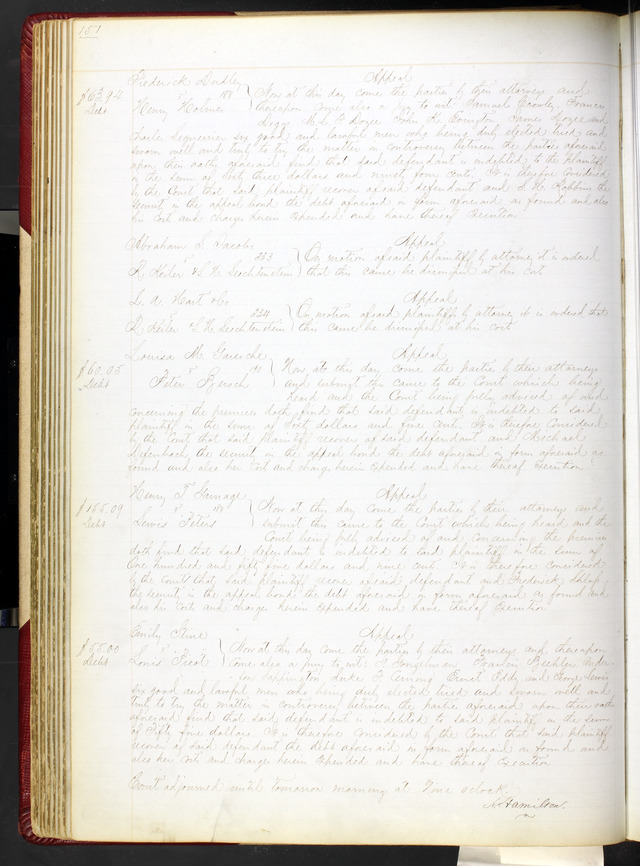 151
Frederick Dudley Appeal
$63.94 188 Now at this day come the parties by their attorneys and
Debt Henry Holmes thereupon come also a jury to wit Samuel Francis
John H James and
Charles six good and lawful men who being duly elected tried and
sworn well and truly to try the matter in controversy between the parties aforesaid
upon their oaths aforesaid find that said defendant is indebted to the plaintiff
in the sum of Sixty three dollars and ninety four cents. It is therefore considered
by the Court that said plaintiff recover of said defendant and
security in the appeal bond the debt aforesaid in form aforesaid as found and also
his cost and charges herein expended and have thereof Execution
Abraham S. Jacobs Appeal
vs 233 On motion of said plaintiff by attorney it is ordered
R. Keiler & S. H. Leichtenstein that this cause be dismissed at his cost
L. A. Hart & Co Appeal
vs 234 On motion of said plaintiffs by attorney it is ordered that
R. Keiler & S. H. Leichtenstein this cause be dismissed at his cost
Louisa M. Appeal
$60.05 vs 190 Now at this day come the parties by their attorneys
Debt Peter and submit this cause to the Court which being
heard and the Court being fully advised of and
concerning the premises doth find that said defendant is indebted to said
plaintiff in the sum of Sixty dollars and five cents. It is therefore Considered
by the Court that said Plaintiff recover of said defendant and Michael
the security in the appeal bond the debt aforesaid in form aforesaid as
found and also her Cost and charges herein expended and have thereof execution
Henry T. Gamage Appeal
$155.09 vs 188 Now at this day come the parties by their attorneys and
Debt Lewis Peters submit this cause to the Court which being heard and the
Court being fully advised of and concerning the premises
doth find that said defendant is indebted to said plaintiff in the sum of
One hundred and fifty five dollars and nine cents It is therefore considered
by the Court that said plaintiff recover of said defendant and Frederick
the security in the appeal bond the debt aforesaid in form aforesaid as found and
also his Cost and charges herein expended and have thereof Execution
Emily Stine Appeal
$55.00 vs Now at this day come the parties by their attorneys and thereupon
Debt Louis come also a jury to wit:
Sappington Luke Ernst Eddy and George Lewis
six good and lawful men who being duly elected tried and sworn well and
truly to try the matter in controversy between the parties aforesaid upon their oaths
aforesaid find that said defendant is indebted to said plaintiff in the sum
of Fifty five dollars It is therefore considered by the Court that said plaintiff
recover of said defendant the debt aforesaid in form aforesaid as found and
also her Cost and charges herein expended and have thereof Execution
Court adjourned until tomorrow morning at Nine oclock.
A. Hamilton.